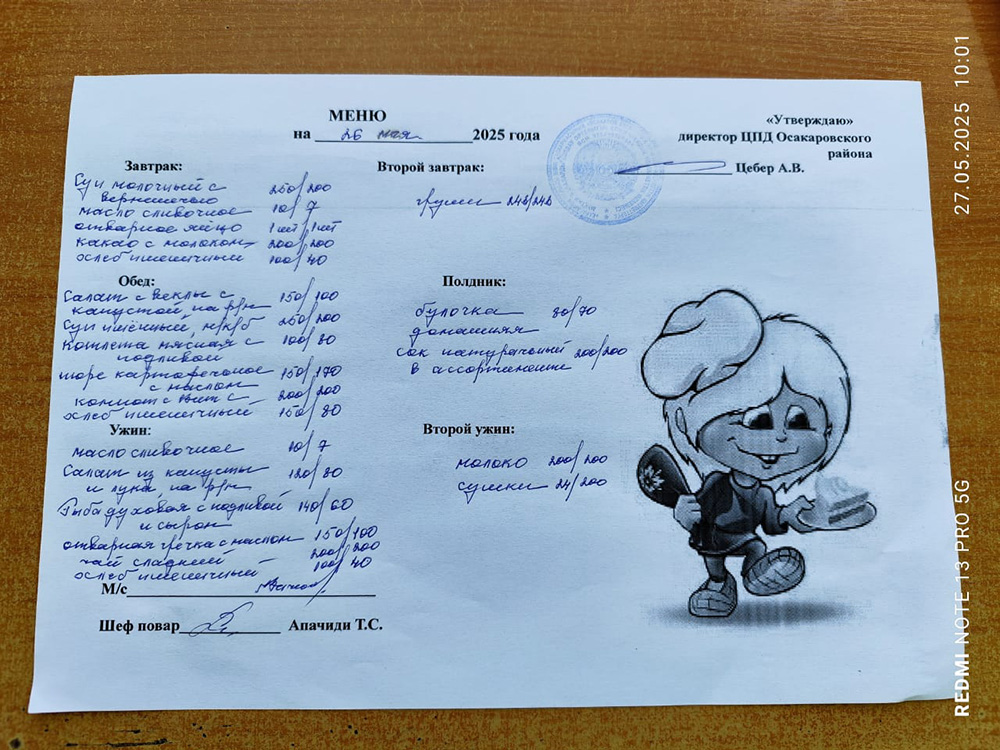 МЕНЮ
на 26 мая 2025 года
«Утверждаю»
директор ЦПД Осакаровского
района
Цебер А.В.
Завтрак:
Суп молочный с 250/200
вермишелью
масло сливочное 10/7
отварное яйцо 1шт/1шт
какао с молоком 200/200
хлеб пшеничный 100/40
Второй завтрак:
груши 248/248
Обед:
Салат с свеклы с 150/100
капустой, на р/м
Суп пшённый, м/к/б 250/200
котлета мясная с 100/80
подливой
пюре картофельное 150/170
с маслом
компот с вит с 200/200
хлеб пшеничный 150/80
Полдник:
булочка 80/70
домашняя
сок натуральный 200/200
в ассортименте
Ужин:
масло сливочное 10/7
Салат из капусты 120/80
и лука, на р/м
Рыба духовая с подливой 140/60
и сыром
отварная гречка с маслом 150/100
чай сладкий 200/200
хлеб пшеничный 100/40
Второй ужин:
молоко 200/200
сушки 24/200
М/с
Шеф повар Апачиди Т.С.
27.05.2025 10:01
REDMI NOTE 13 PRO 5G